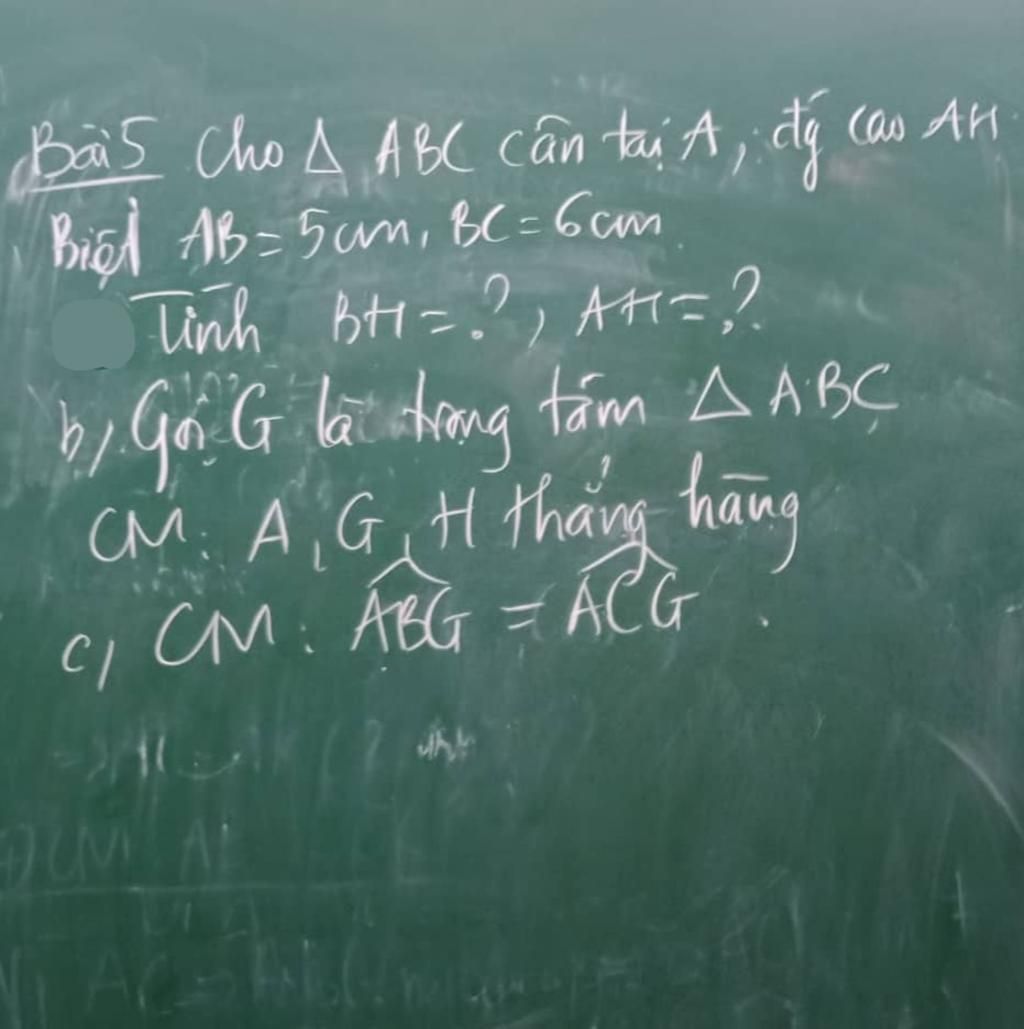 Bài 5 Cho △ ABC cân tại A, đg cao AH.
Biết AB = 5cm, BC = 6cm.
Tính BH = ?, AH = ?
b, Gọi G là trọng tâm △ ABC
CM: A, G, H thẳng hàng
c, CM: \widehat{ABG} = \widehat{ACG}.